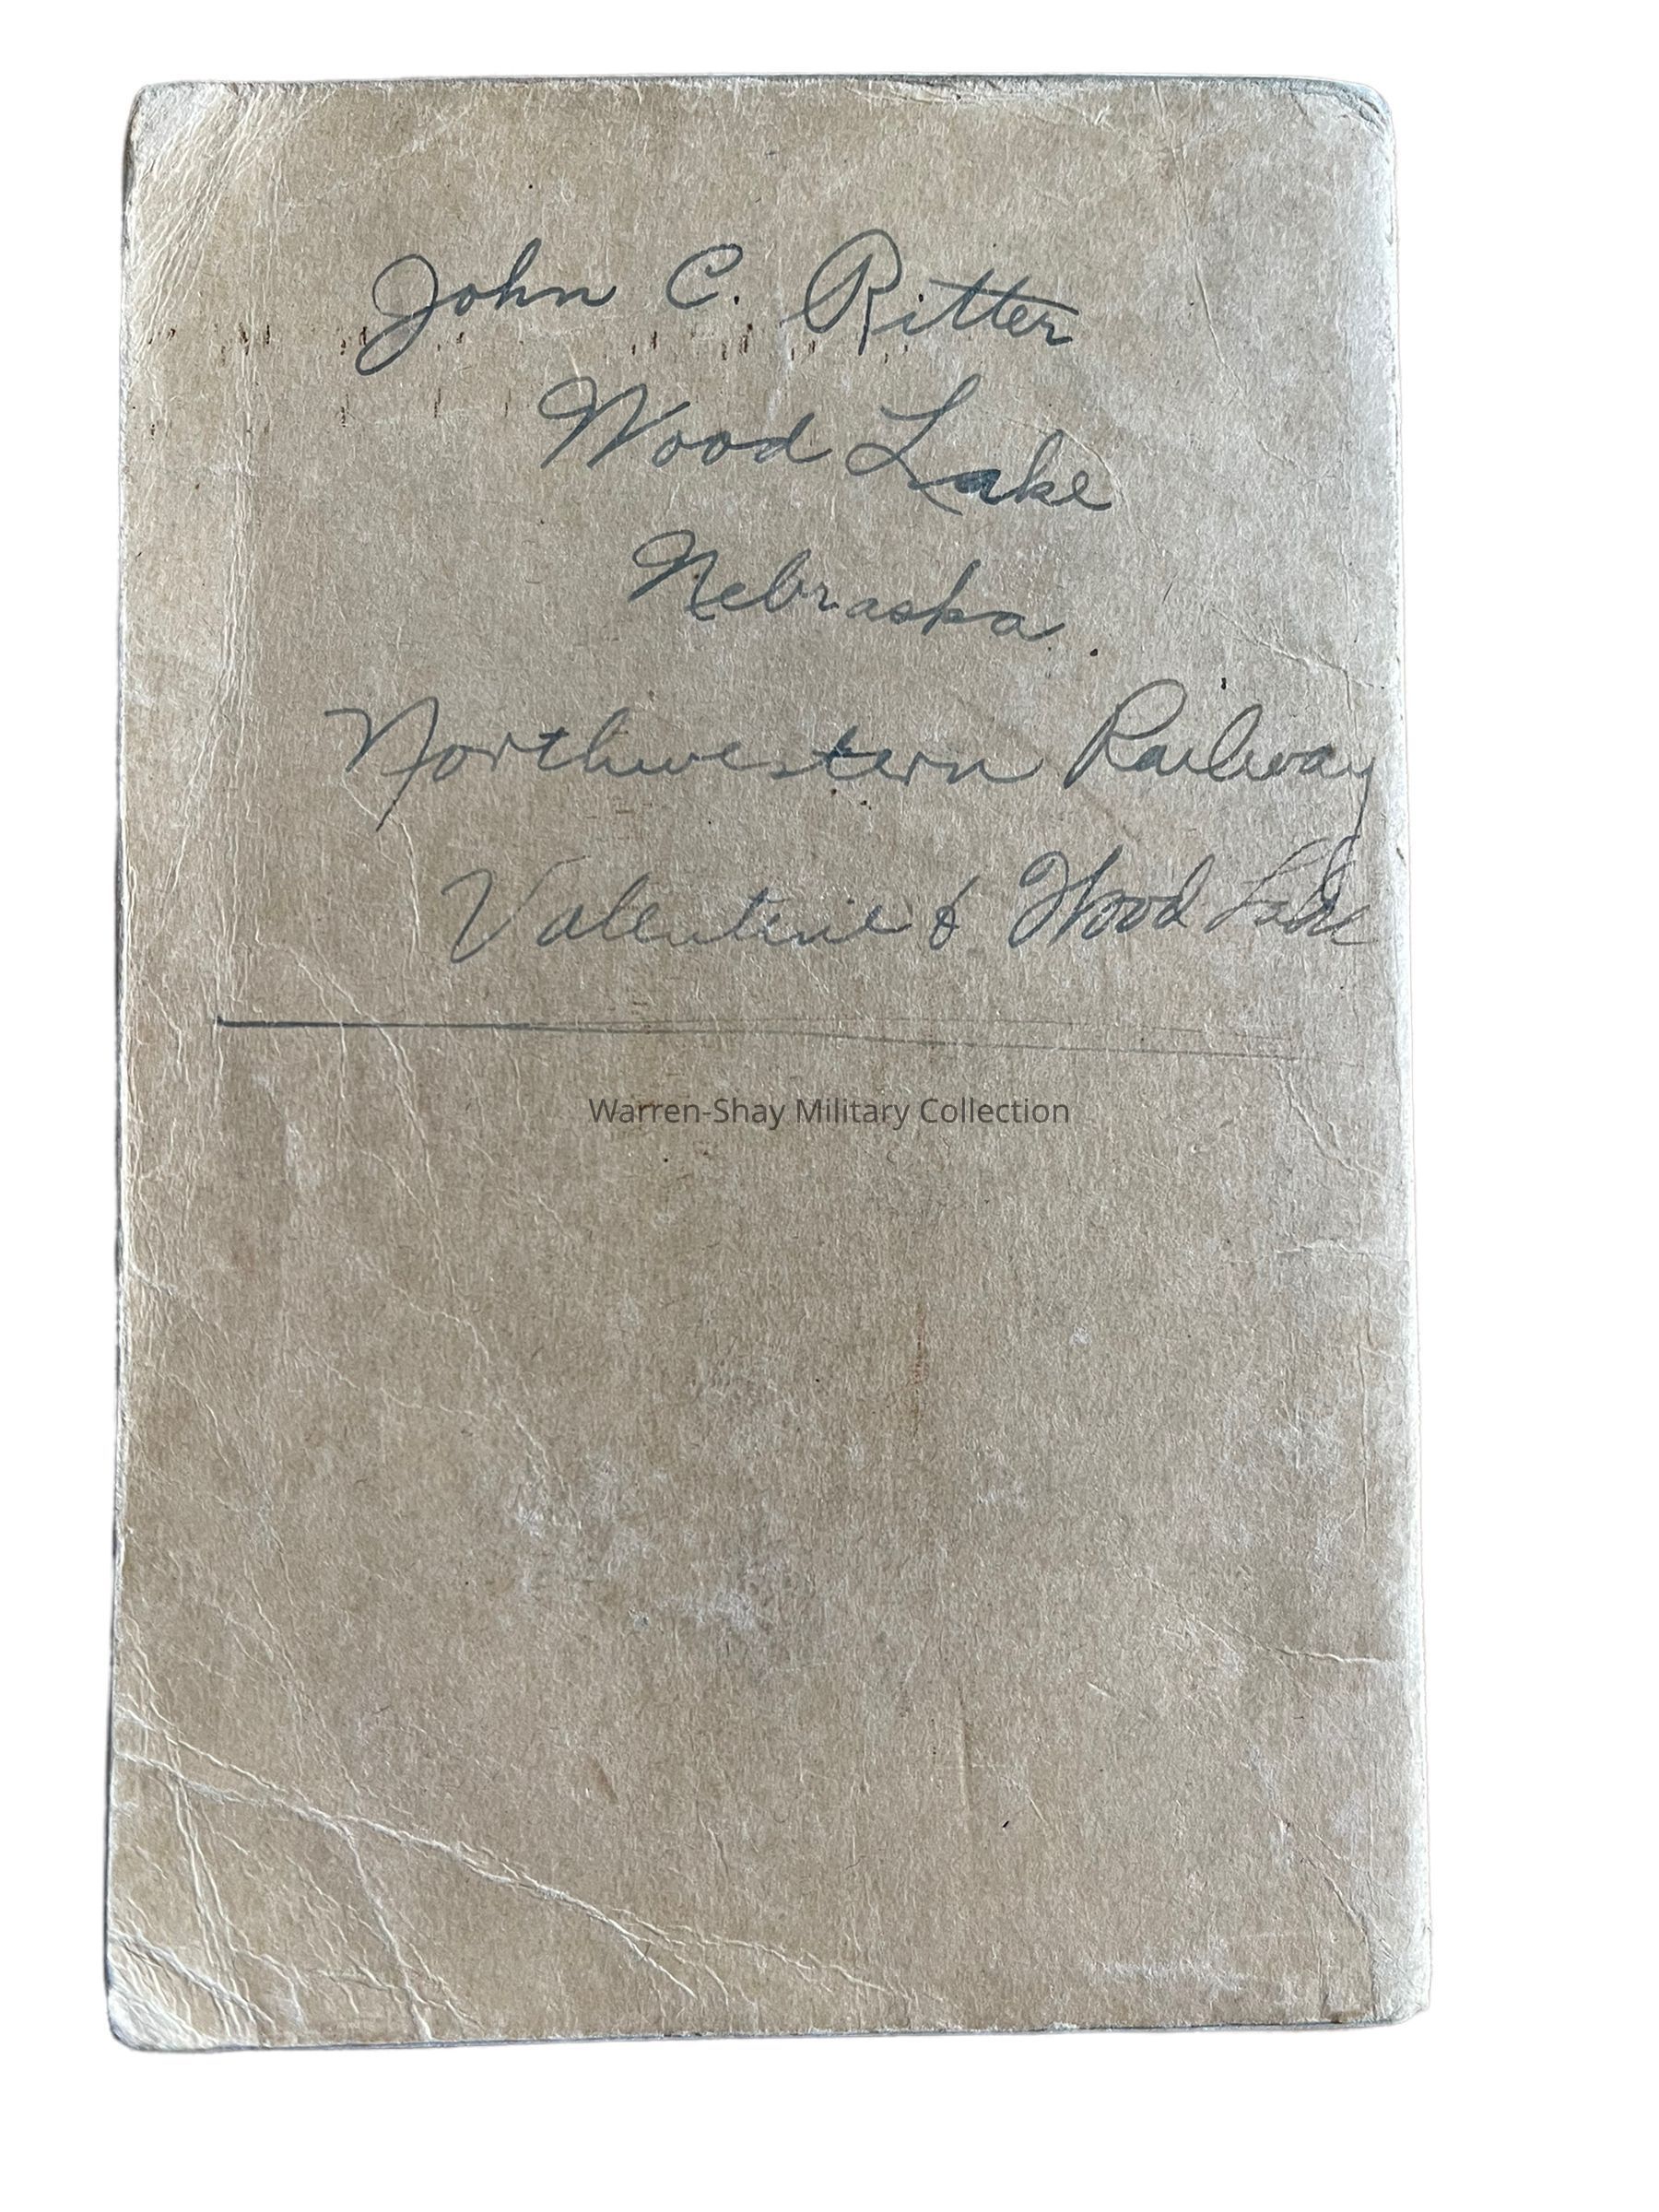 John C. Ritter
Wood Lake
Nebraska.
Northwestern Railway
Valentine & Wood Lake
Warren-Shay Military Collection